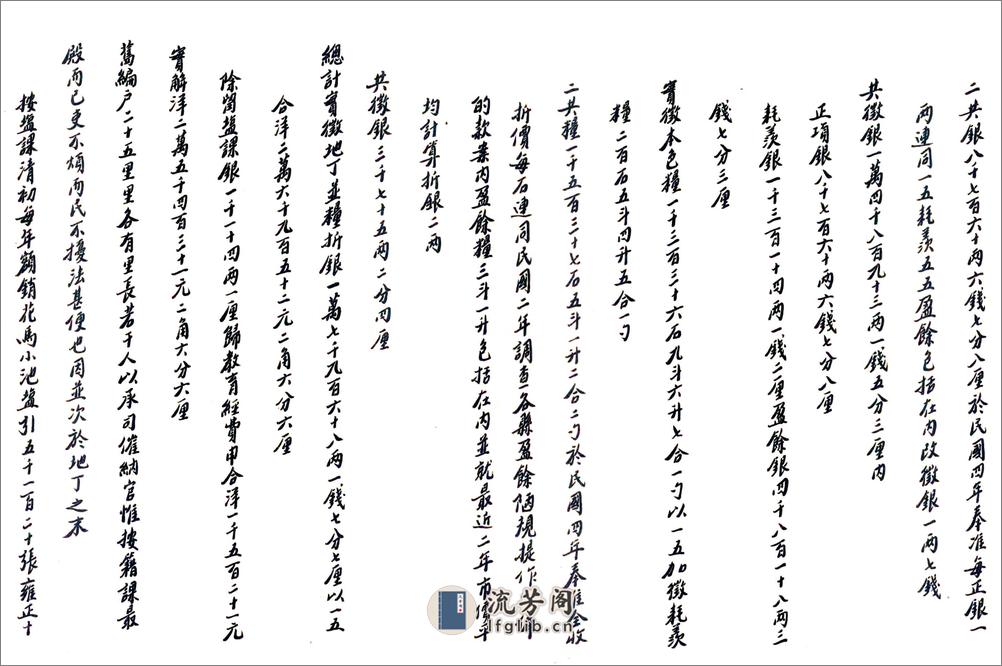 二共銀八千七百六十兩六錢七分八厘於民國四年奉准每正銀一
兩連同一五耗羨五五盈餘包括在內改徵銀一兩七錢
共徵銀一萬四千八百九十三兩一錢五分三厘內
正項銀八千七百六十兩六錢七分八厘
耗羨銀一千三百一十四兩一錢二厘盈餘銀四千八百一十八兩三
錢七分三厘
實徵本色糧一千三百三十六石九斗六升七合一勺以一五加徵耗羨
糧二百石五斗四升五合一勺
二共糧一千五百三十七石五斗一升二合二勺於民國四年奉准全收
折價每石連同民國二年調查各縣盈餘陋規提作
的款案內盈餘糧三斗一升包括在內並就最近二年市價平
均計算折銀二兩
共徵銀三千七十五兩二分四厘
總計實徵地丁並糧折銀一萬七千九百六十八兩一錢七分七厘以一五
合洋二萬六千九百五十二元二角六分六厘
除留盐課銀一千一十四兩一厘歸教育經費申合洋一千五百二十一元
實解洋二萬五千四百三十一元二角六分六厘
舊編户二十五里里各有里長若干人以承司催納官惟按籍課最
殿而已吏不煩而民不擾法甚便也因並次於地丁之末
按盐課清初每年額銷花馬小池盐引五千一百二十張雍正十
流芳閣
lfglib.cn